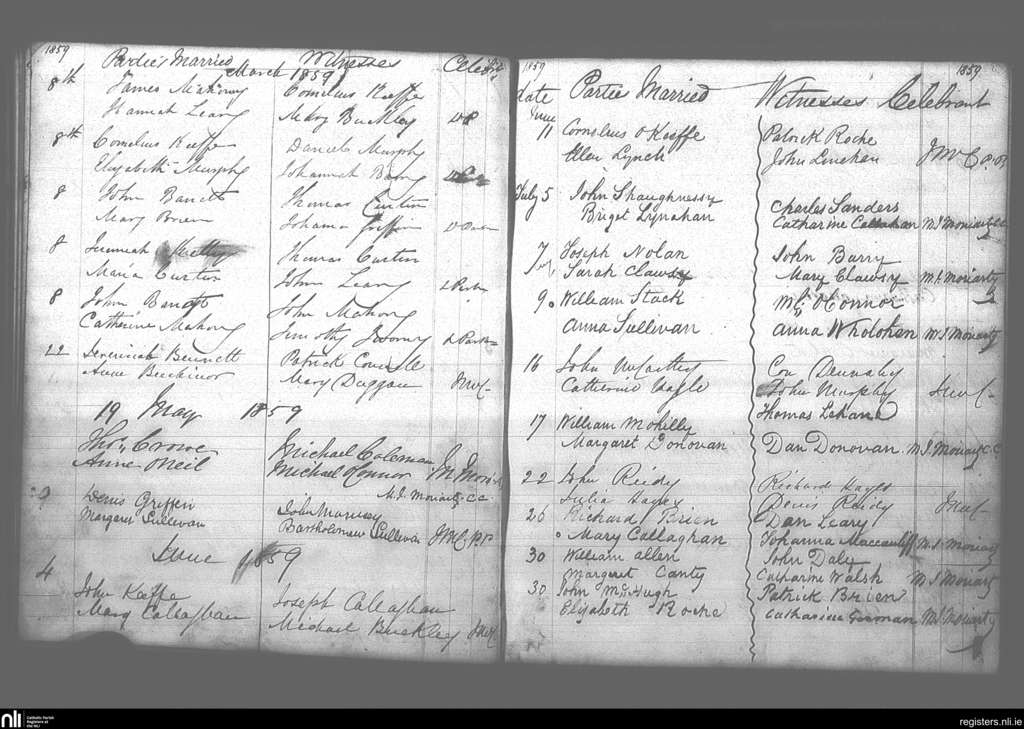 1859
Parties Married Witnesses Celebt
March 1859
8th James Mahony Cornelius Keeffe
Hannah Leary Mary Buckley
8th Cornelius Keeffe Daniel Murphy
Elizabeth Murphy Johannah Barry
8 John Barrett Thomas Curtin
Mary Brien Johanna Griffin
8 Jeremiah Thomas Curtin
Maria Curtin John Leary
8 John John Mahony
Catherine Mahony Timothy
22 Jeremiah Bennett Patrick
Anne Mary Duggan JMcC
19 May 1859
Thos Crowe Michael Coleman
Anne Neil Michael O'Connor
M.J. Moriarty C.C.
9 Denis Griffin John
Margaret Sullivan Bartholomew Sullivan JMcC P.P.
June 1859
4
John Keeffe Joseph Callaghan
Mary Callaghan Michael Buckley JMcC
1859 1859
date Parties Married Witnesses Celebrant
June
11 Cornelius O'Keeffe Patrick Roche
Ellen Lynch John Linehan JMcC P.P.
July 5 John Shaughnessy Charles Sanders
Briget Lynahan Catharine Callahan M.J. Moriarty C.C.
7 Joseph Nolan John Barry
July Sarah Clawsy Mary Clawsy M.J. Moriarty
9 William Stack O'Connor
Anna Sullivan Anna Wholohen M.J. Moriarty
16 John McCarthy Con
Catherine Nagle John Murphy JMcC
17 William Mohilly Thomas Lehane
Margaret Donovan Dan Donovan M.J. Moriarty C.C.
22 John Reidy Richard Hayes
Julia Hayes Denis Reidy JMcC
26 Richard Brien Dan Leary
Mary Callaghan Johanna Maccauliff M.J. Moriarty
30 William Allen John Daly
Margaret Canty Catharine Walsh M.J. Moriarty
30 John McHugh Patrick Brien
Elizabeth Roche Catharine Gorman M.J. Moriarty
nli Catholic Parish
Registers at
the NLI
registers.nli.ie